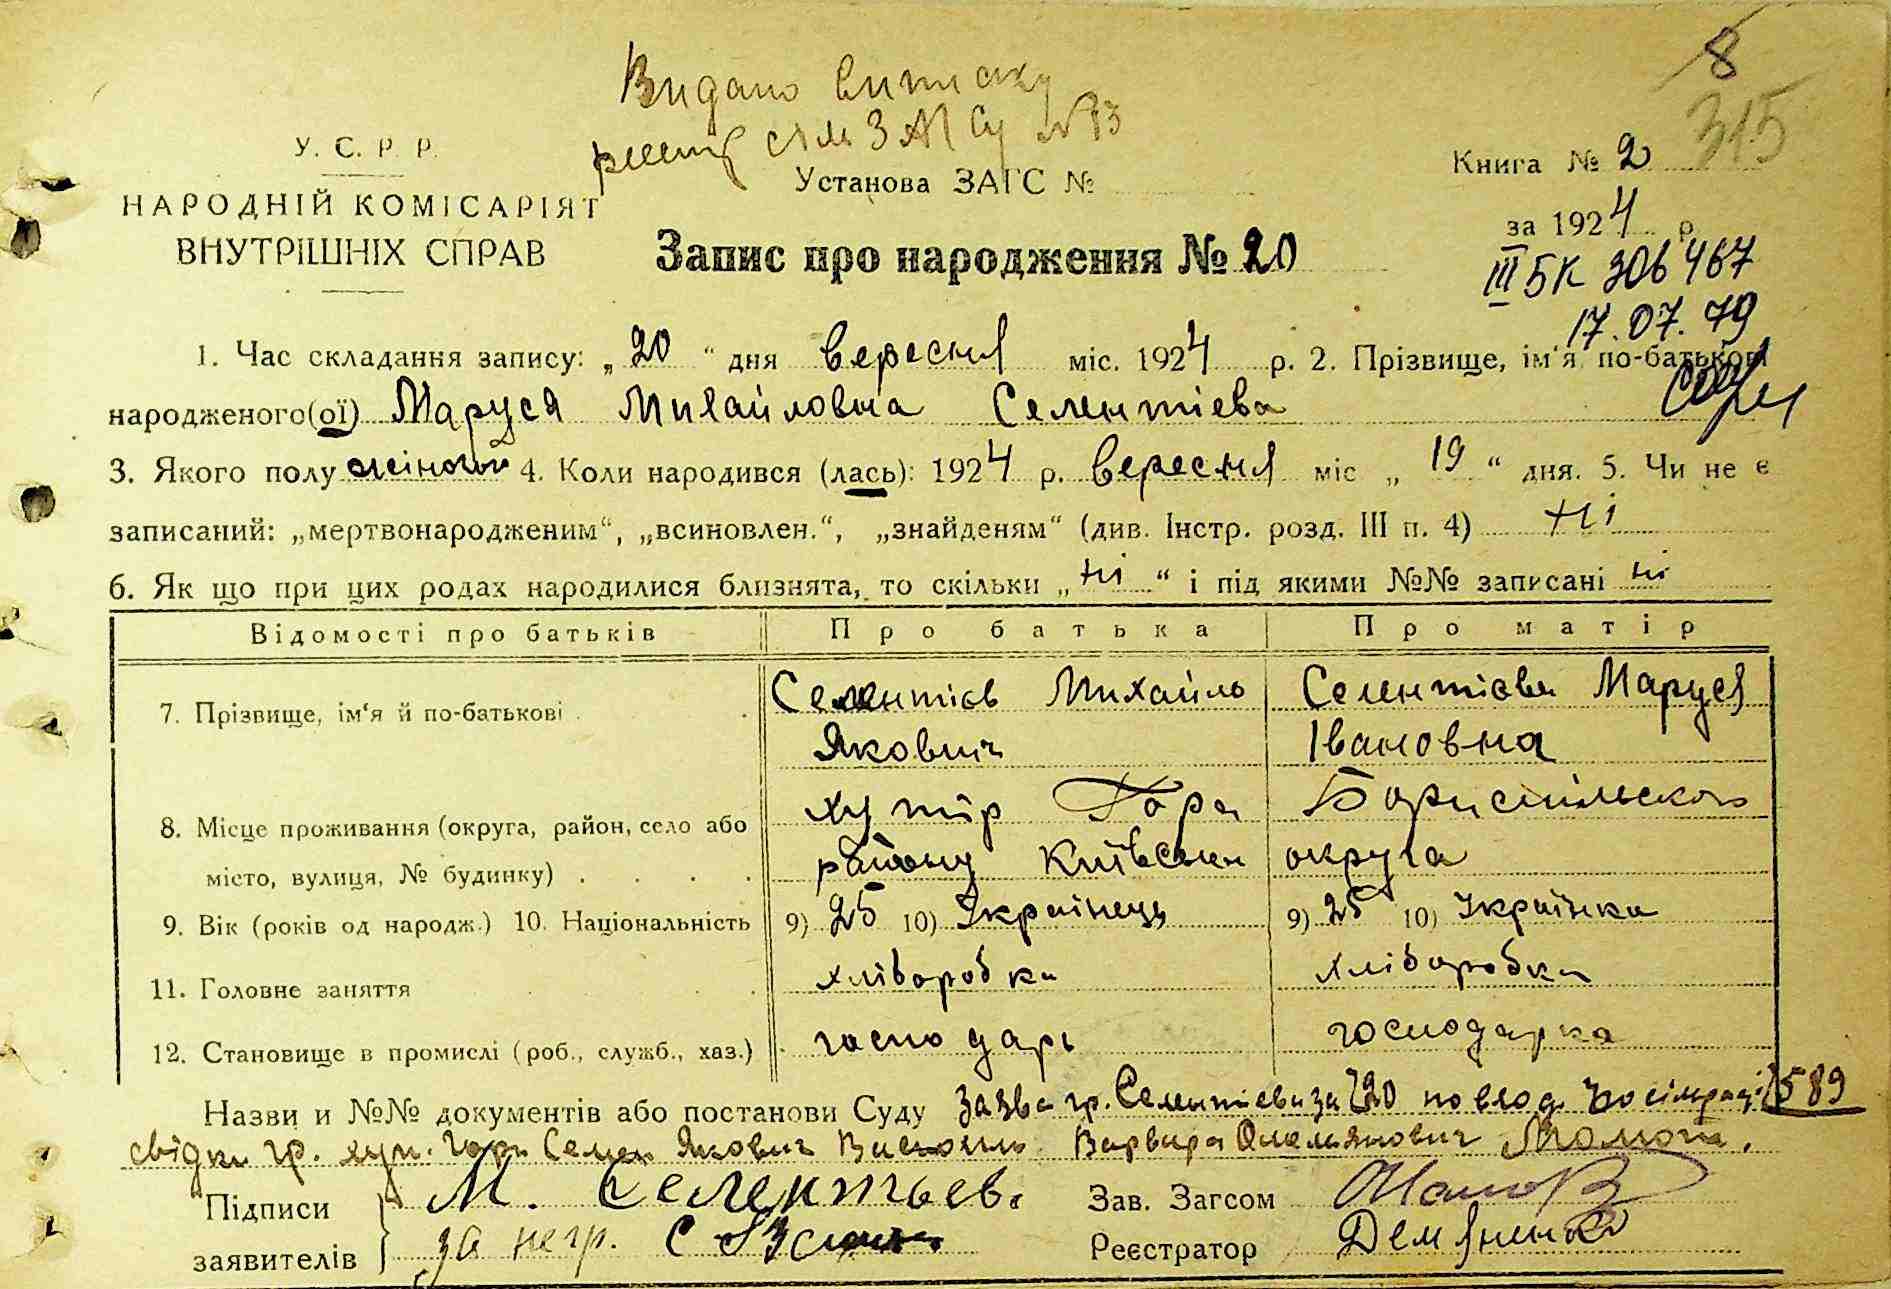 8
315
Видано виписку
ЗАГСу №
У. С. Р. Р.
НАРОДНІЙ КОМІСАРІЯТ
ВНУТРІШНІХ СПРАВ
Установа ЗАГС №
Книга № 2
за 1924 р.
Запис про народження № 20
III БК 306467
17.07.79
1. Час складання запису: „20“ дня вересня міс. 1924 р. 2. Прізвище, ім'я по-батькові
народженого(ої) Маруся Михайловна Селентієва
3. Якого полу жіночой 4. Коли народився (лась): 1924 р. вересня міс „19“ дня. 5. Чи не є
записаний: „мертвонародженим“, „всиновлен.“, „знайденям“ (див. Інстр. розд. III п. 4) ні
6. Як що при цих родах народилися близнята, то скільки „ні“ і під якими №№ записані ні
Відомості про батьків Про батька Про матір
7. Прізвище, ім'я й по-батькові Селентієв Михайль Селентієва Маруся
Якович Івановна
8. Місце проживання (округа, район, село або хутір Гора Бориспільского
місто, вулиця, № будинку) району Київскои округа
9. Вік (років од народж.) 10. Національність 9) 25 10) Українець 9) 25 10) Українка
11. Головне заняття хліборобка хліборобка
12. Становище в промислі (роб., служб., хаз.) господарь господарка
Назви и №№ документів або постанови Суду Заява гр. Селентієва за 589
свідки гр. хут. Гори Семен Якович Варвара
Підписи М. Селентьев Зав. Загсом
заявителів за негр. Реєстратор Демяненко